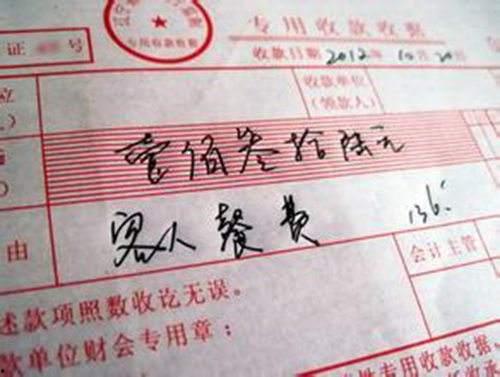 专用收款收据
证 号
专用收款收据
收款日期 2012年 10月 20日
位 收款单位
人） （领款人）
壹佰叁拾陆元
由 客人餐费 136.
会计主管
述款项照数收讫无误。
款单位财会专用章：
专用收款收据